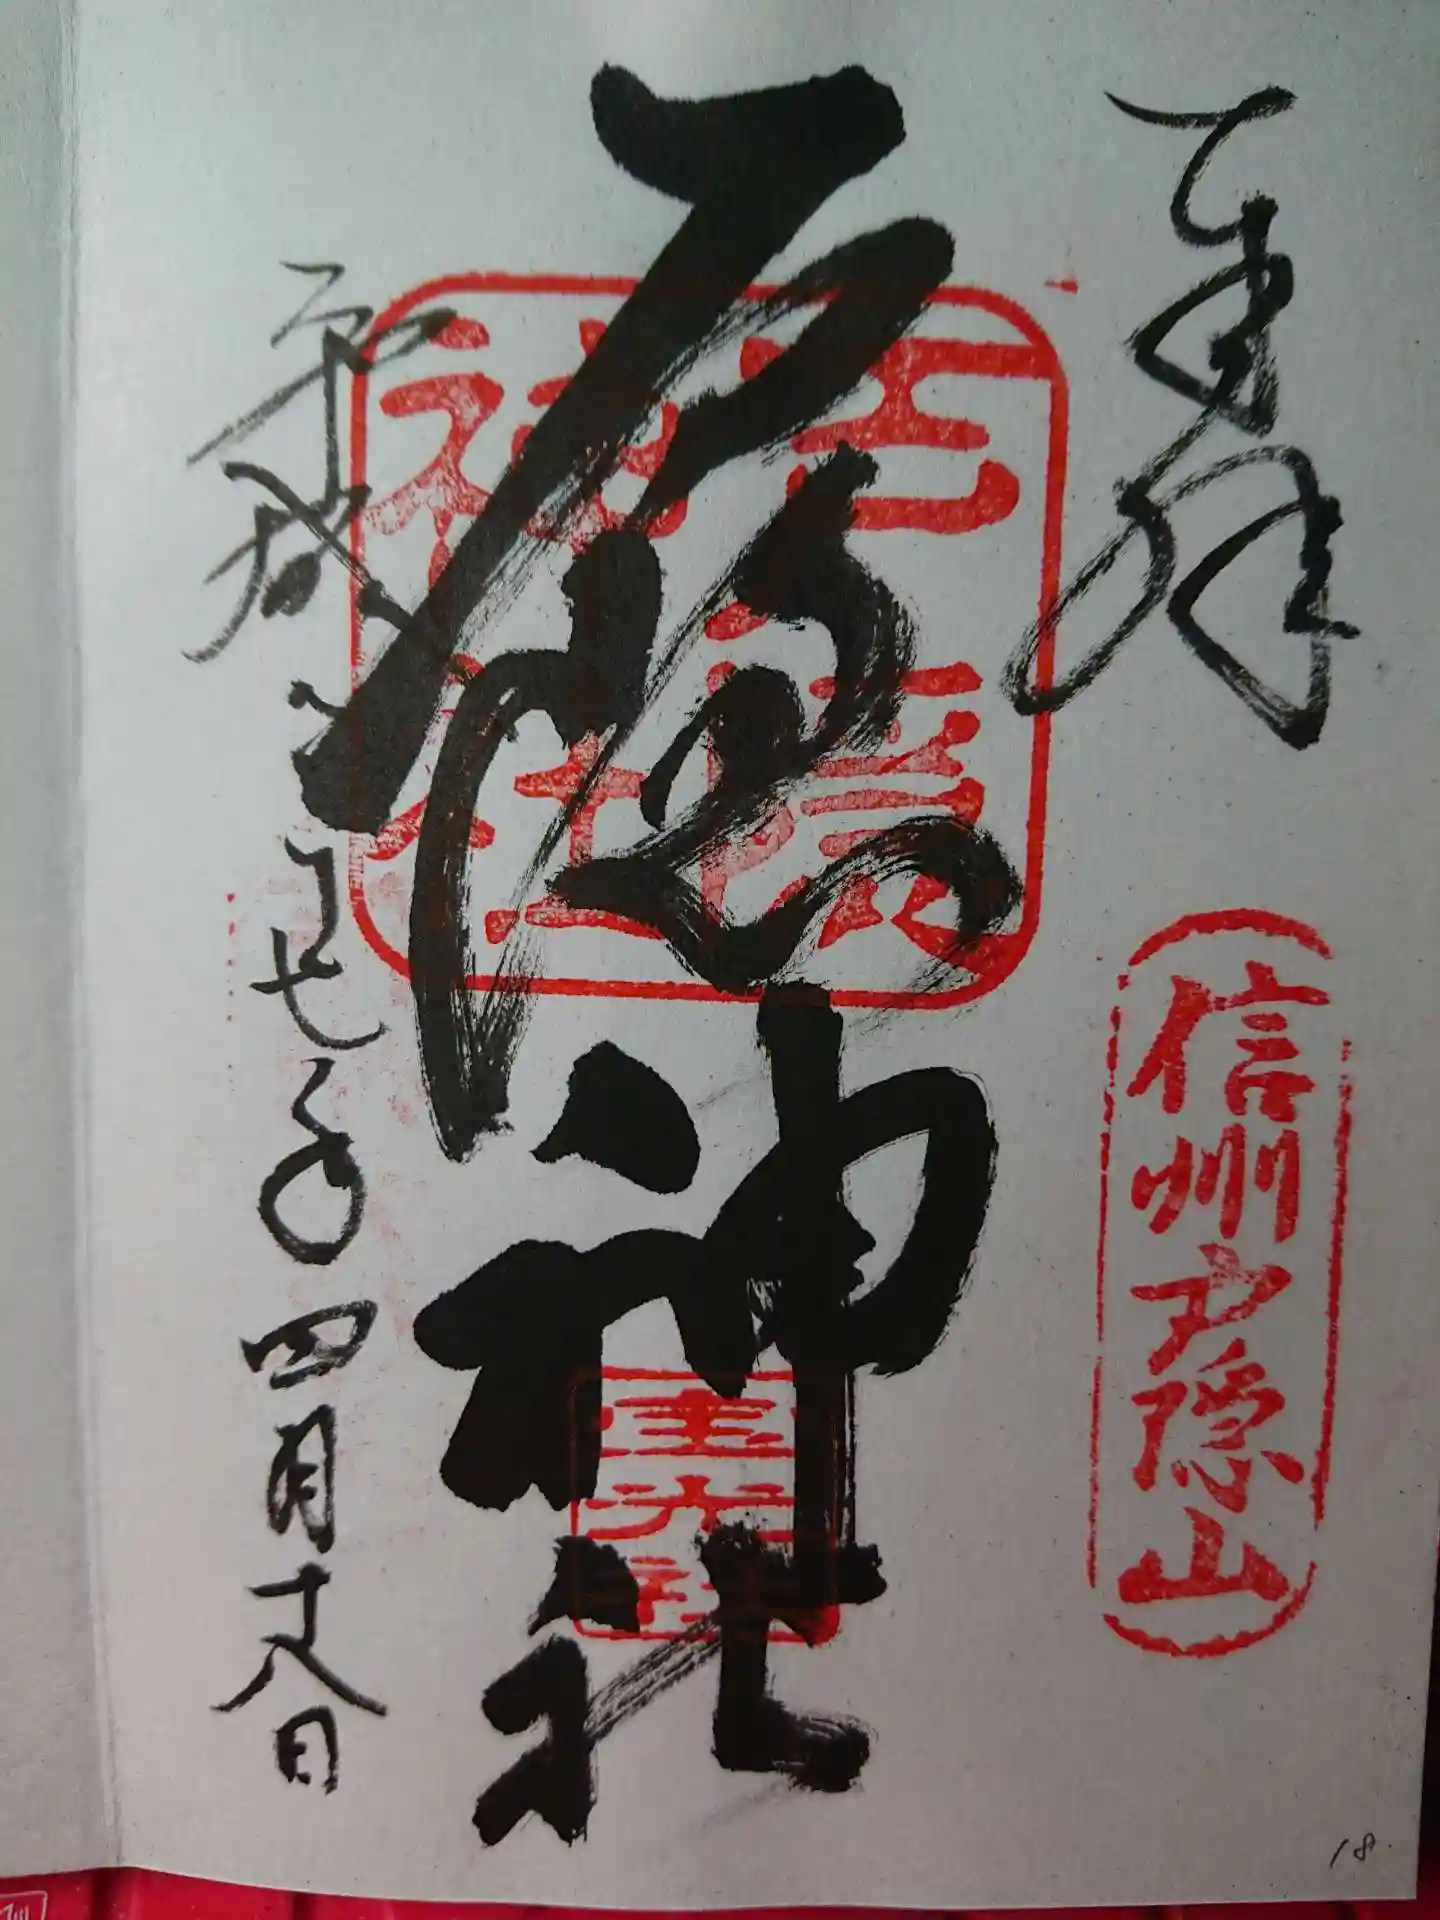 奉拝
信州戸隠山
戸隠神社
戸隠神社
宝光社
平成二十七年四月十八日
18.